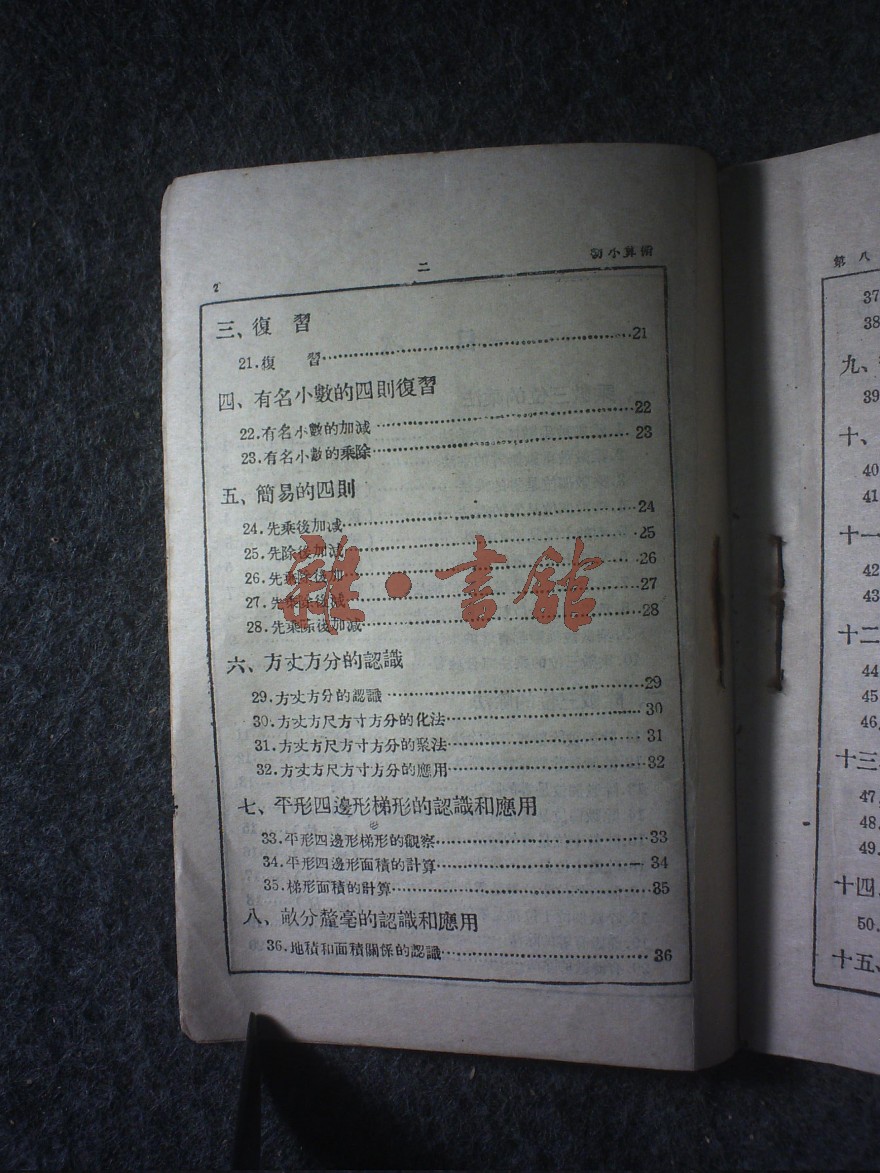 2 二 初小算術
三、復習
21.復習 21
四、有名小數的四則復習
22.有名小數的加減 22
23.有名小數的乘除 23
五、簡易的四則
24.先乘後加减 24
25.先除後加减 25
26.先乘除後加 26
27.先乘除後减 27
28.先乘除後加减 28
六、方丈方分的認識
29.方丈方分的認識 29
30.方丈方尺方寸方分的化法 30
31.方丈方尺方寸方分的聚法 31
32.方丈方尺方寸方分的應用 32
七、平形四邊形梯形的認識和應用
33.平形四邊形梯形的觀察 33
34.平形四邊形面積的計算 34
35.梯形面積的計算 35
八、畝分釐毫的認識和應用
36.地積和面積關係的認識 36
雜·書館
第八
37
38
九、
39
十、
40
41
十一
42
43
十二
44
45
46
十三
47
48
49
十四
50
十五、